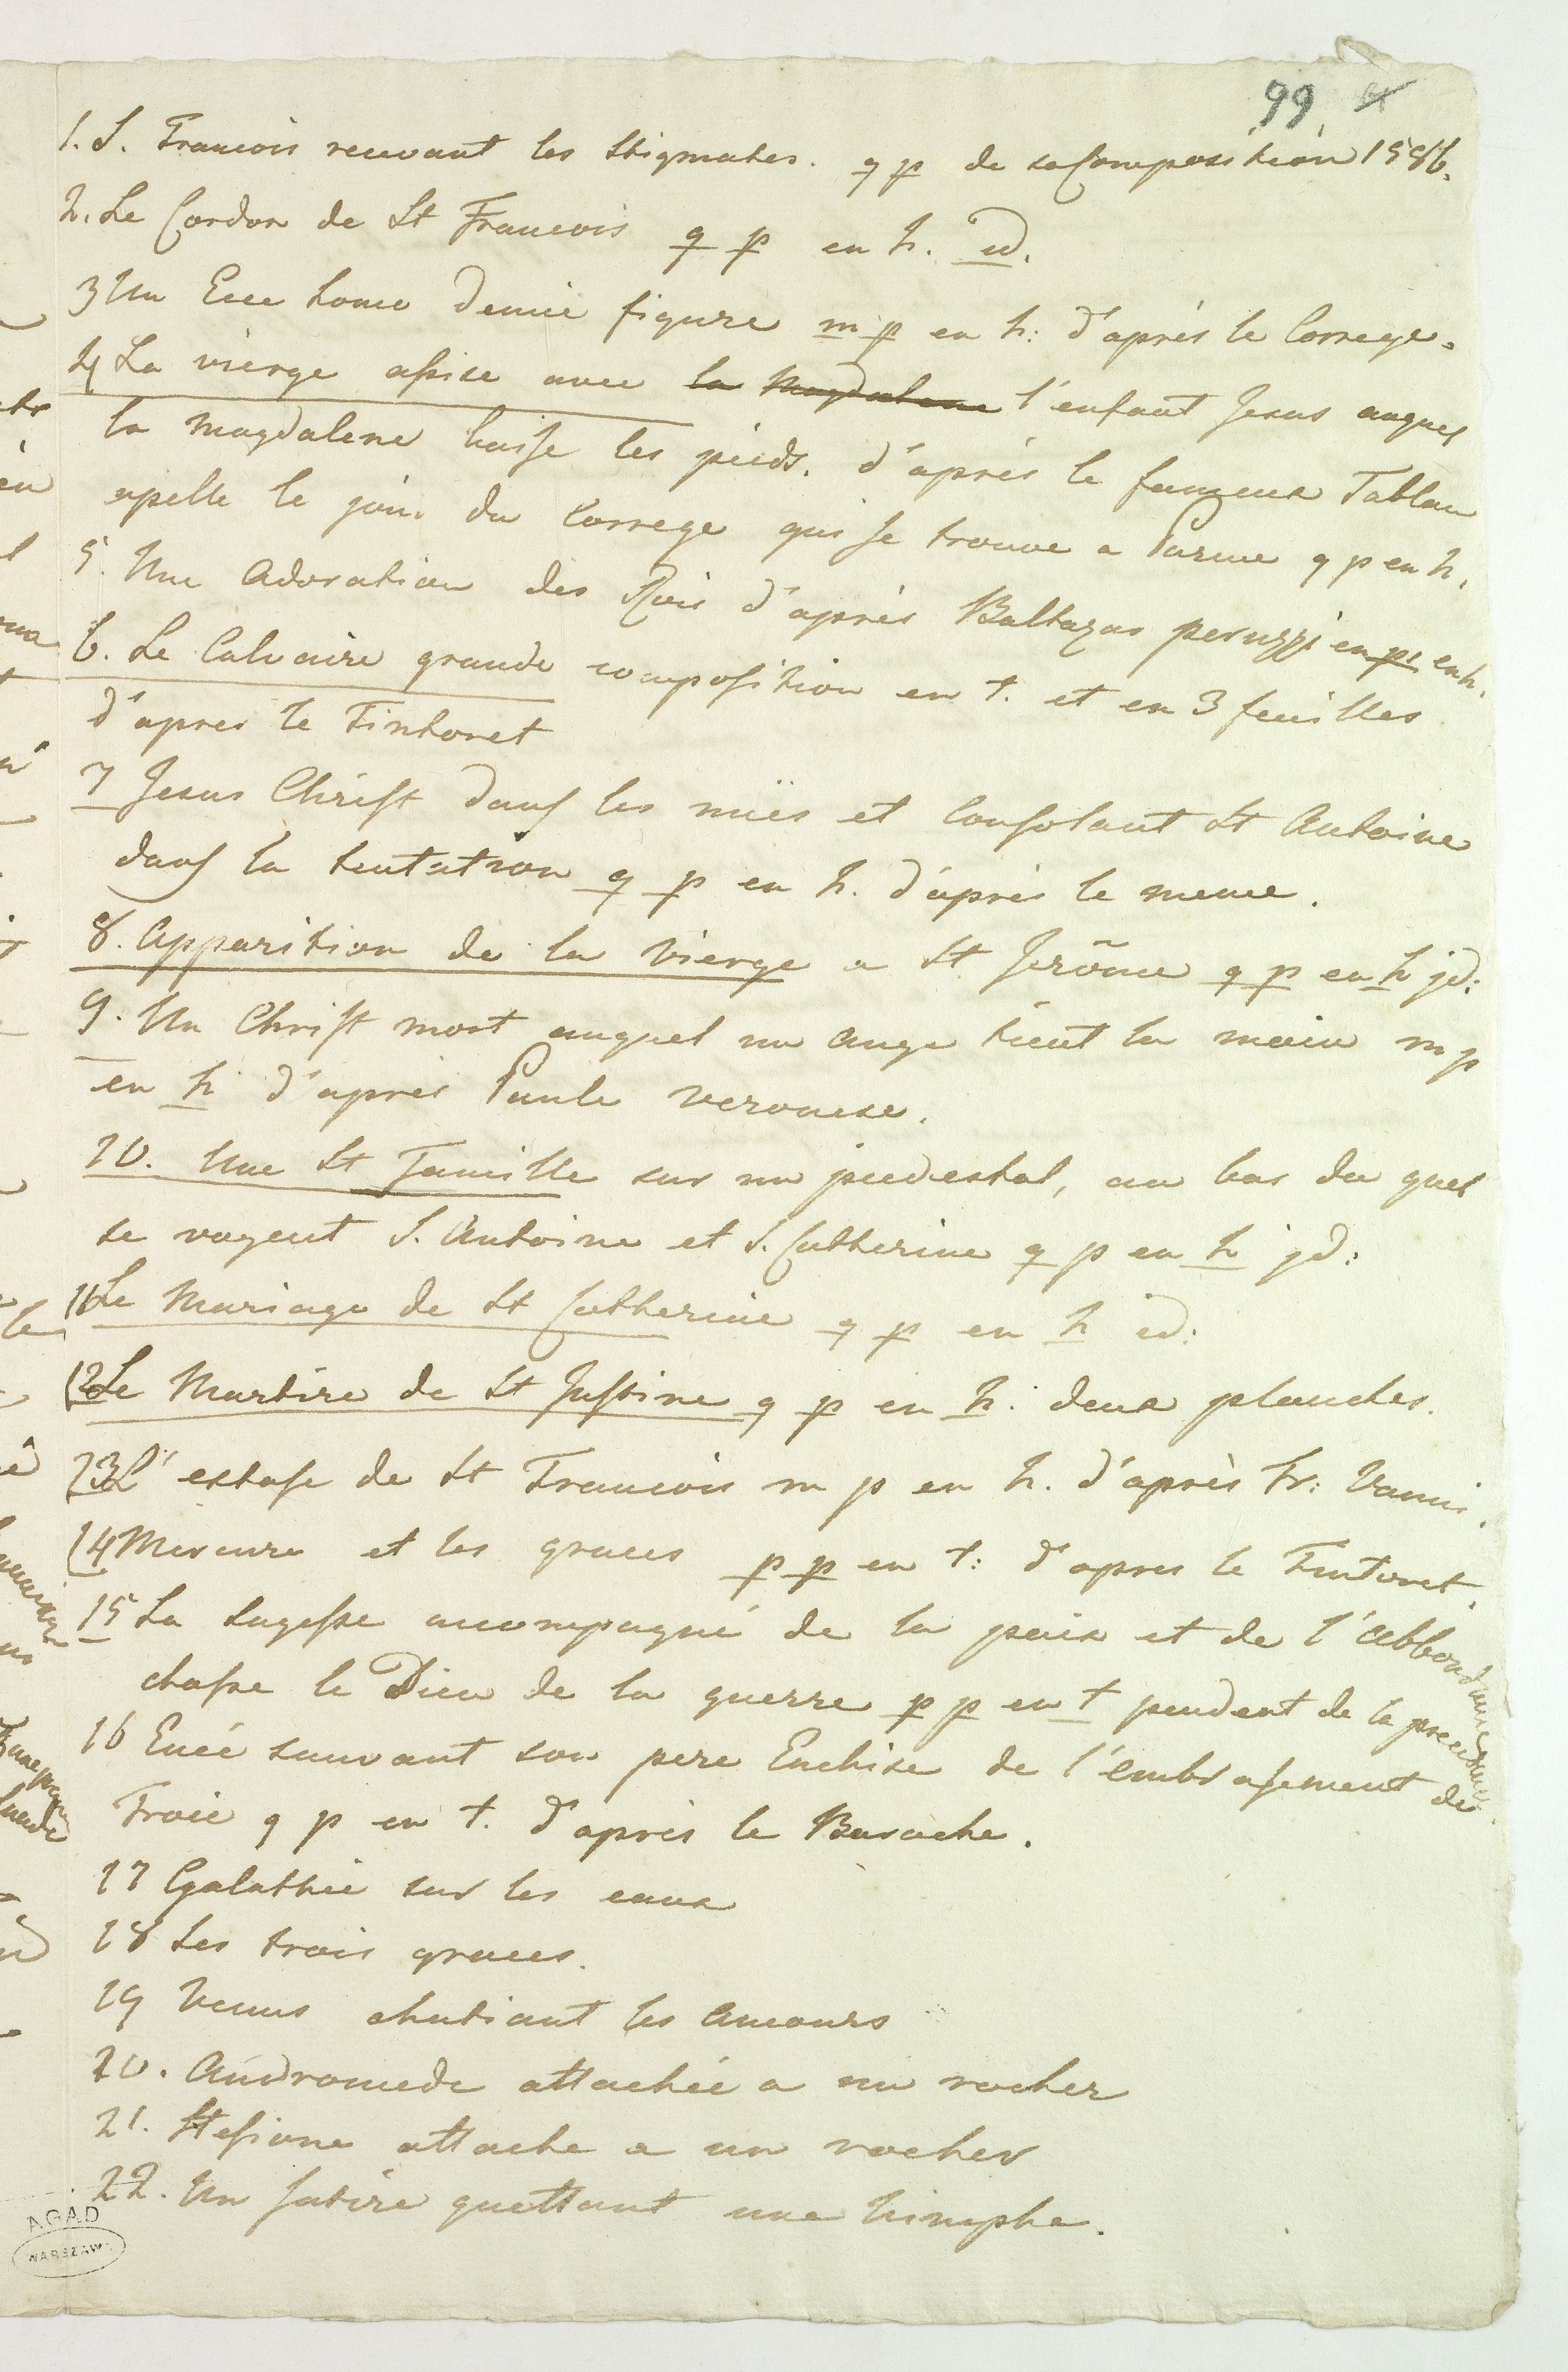 99
1. S. Francois recevant les Stigmates. g p de sa Composition 1586.
2. Le Cordon de St Francois g p en h. id.
3 Un Ecce homo demie figure m p en h: d'aprés le Correge.
4 La vierge assise avec la Magdalene l'enfant Jesus auquel
la magdalene baise les pieds. d'aprés le fameux Tableau
apelle le jour du Correge qui se trouve a Parme g p en h.
5. Une Adoration des Rois d'aprés Baltazar peruzzi en p. en h.
6. Le Calvaire grande composition en t. et en 3 feuilles
d'apres le Tintoret
7 Jesus Christ dans les nuës et Consolant St Antoine
dans la tentation g p en h. d'aprés le meme.
8. Apparition de la Vierge a St Jerôme g p en h jd:
9. Un Christ mort auquel un Ange tient la main m p
en h d'aprés Paule veronese.
10. Une St Famille sur un piedestal, au bas du quel
se voyent S. Antoine et S. Catherine g p en h jd:
11 Le Mariage de St Catherine g p en h id:
12 Le Martire de St Justine g p en h. deux planches.
13 L'extase de St Francois m p en h. d'aprés Fr: Vanni.
14 Mercure et les graces p p en t: d'apres le Tintoret.
15 La Sagesse accompagné de la paix et de l'Abbondance
chasse le Dieu de la guerre p p en t pendent de la precedente.
16 Eneé sauvant son pere Enchise de l'embrasement de
Troie g p en t. d'aprés le Barache.
17 Galathée sur les eaux
18 Les trois graces.
19 Venus chatiant les Amours
20. Andromede attachée a un rocher
21. Hesione attache a un rocher
22. Un Satire guettant une Nimphe.
AGAD
WARSZAWA